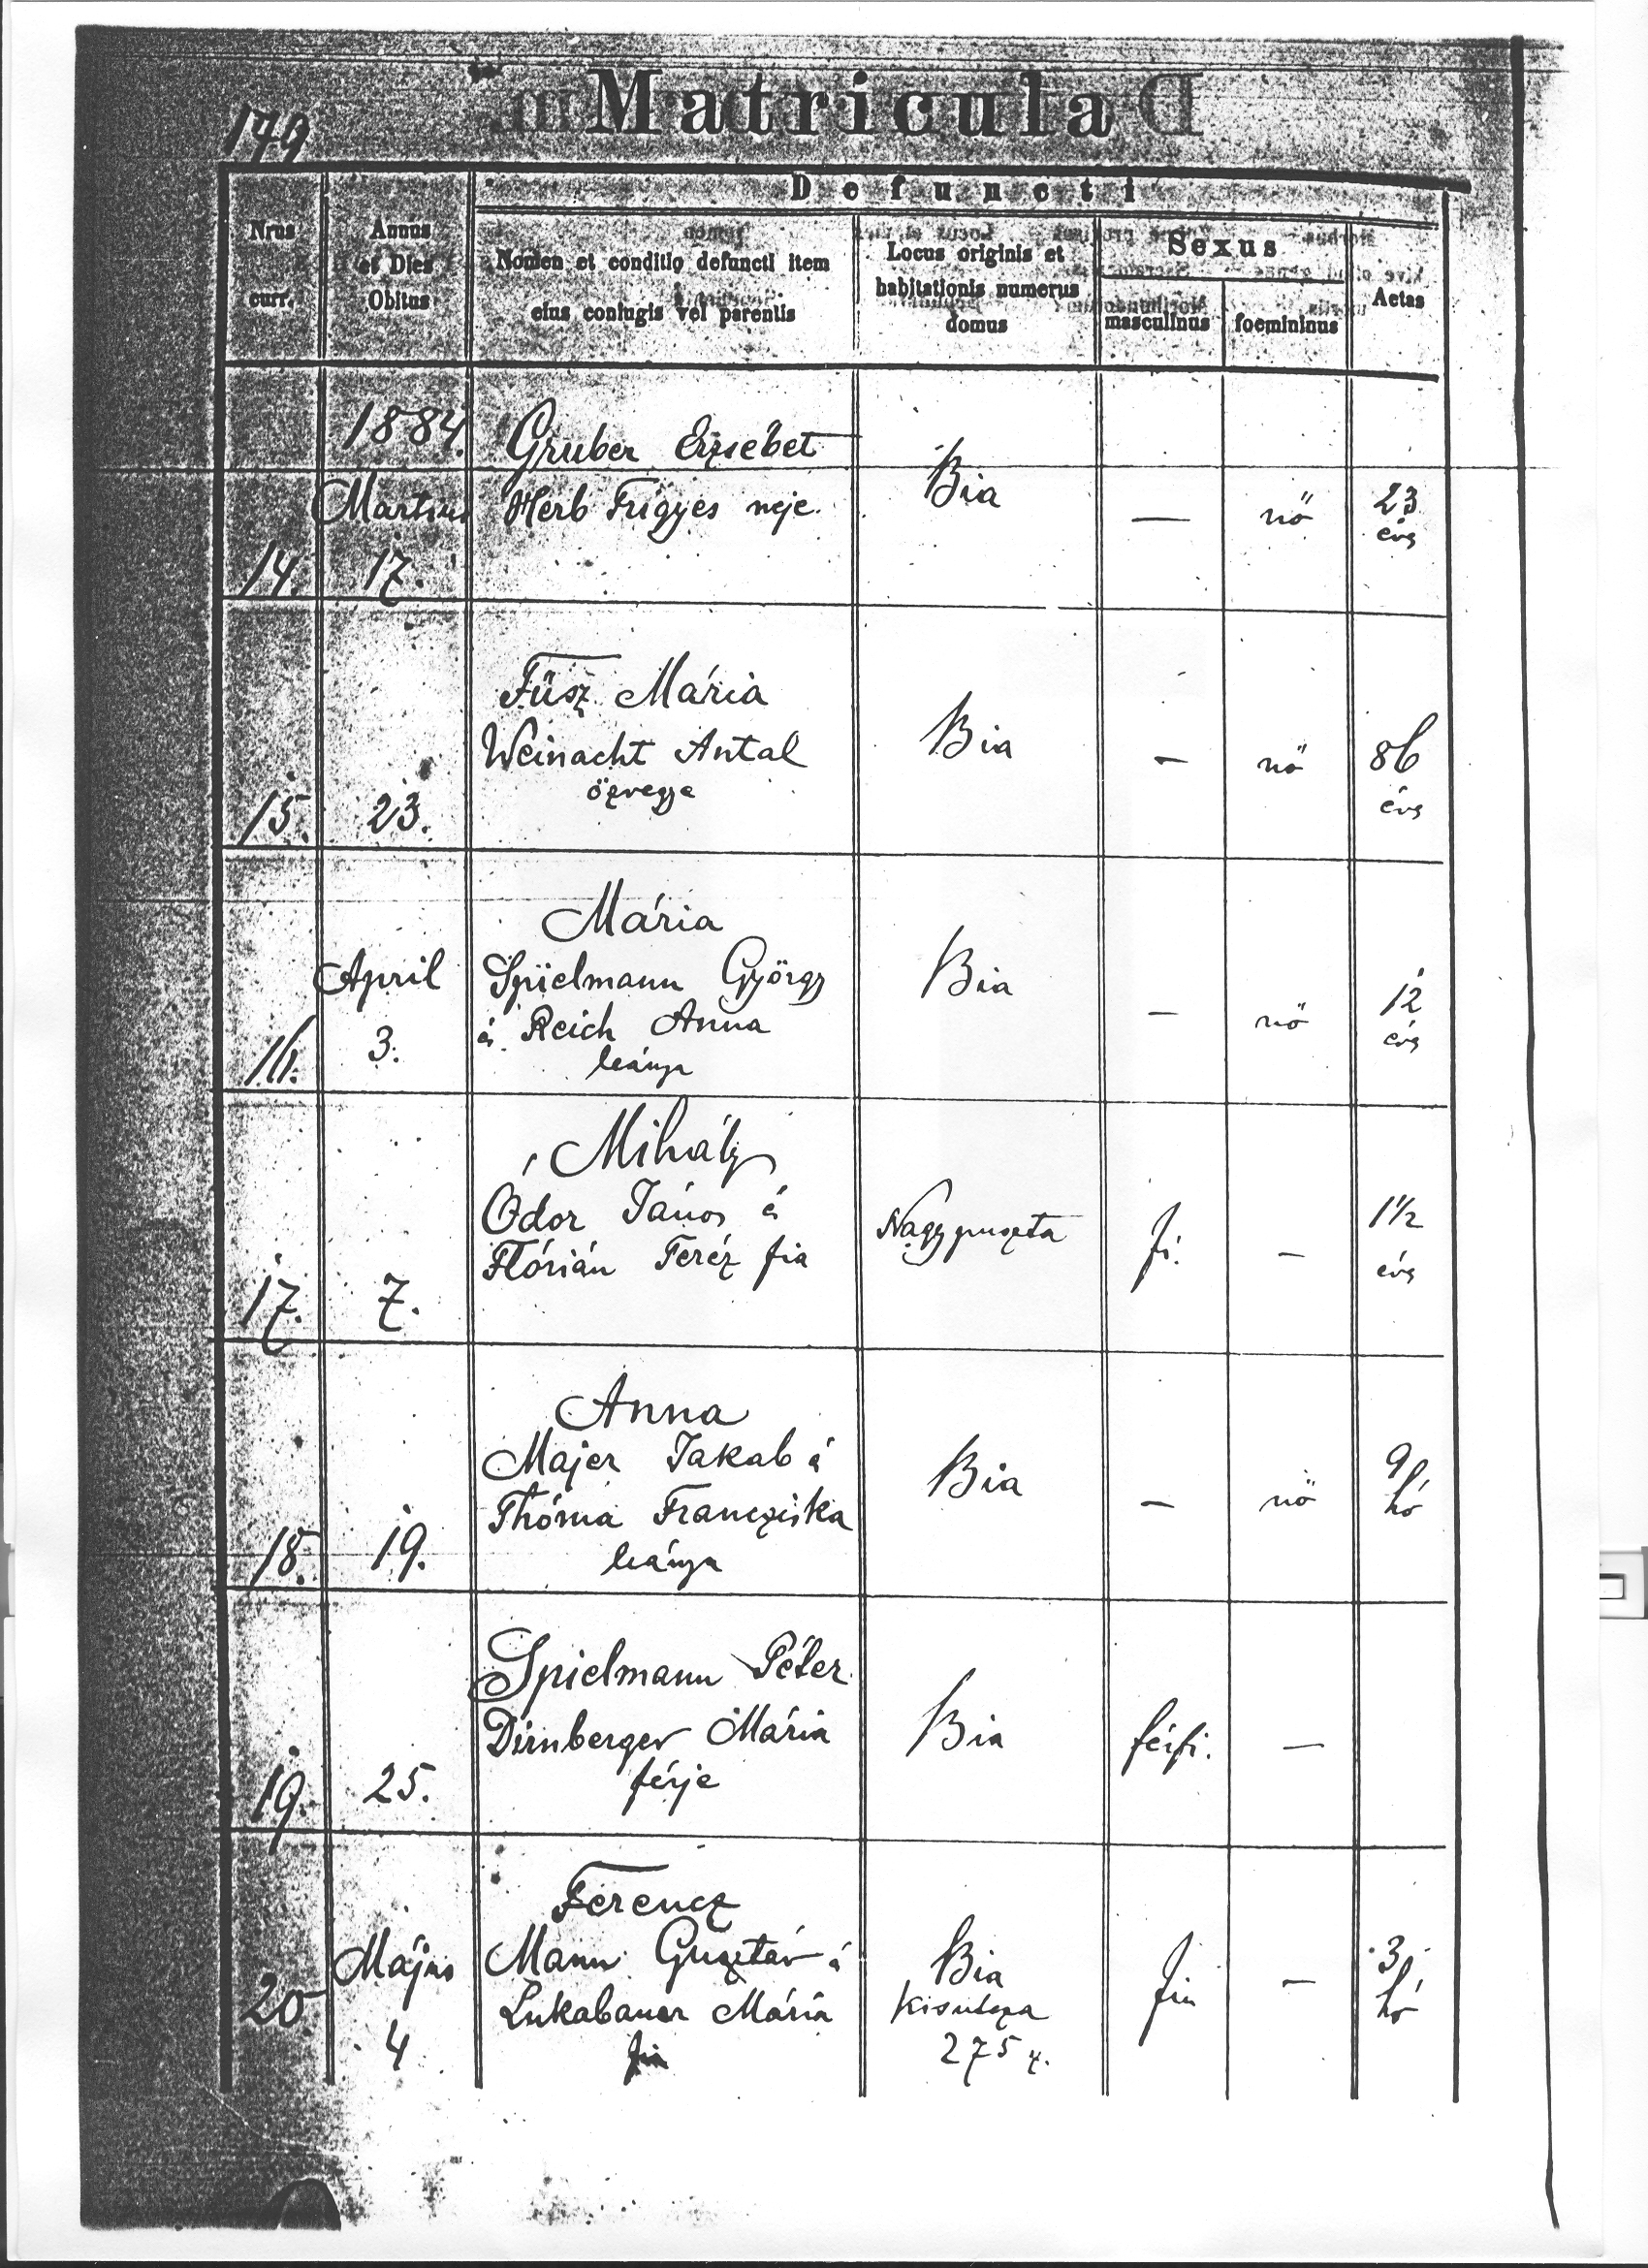 179
Matricula
Defuncti
Nrus
curr.
Annus
et Dies
Obitus
Nomen et conditio defuncti item
eius coniugis vel parentis
Locus originis et
habitationis numerus
domus
Sexus
masculinus
foemininus
Aetas
1884.
Martius
14. 17.
Gruber Erzsébet
Herb Frigyes neje.
Bia
— nő
23
éves
Füsz Mária
Weinacht Antal
özvegye
15. 23.
Bia
— nő
86
éves
Mária
April
Spielmann György
és Reich Anna
leánya
16. 3.
Bia
— nő
12
éves
Mihály
Odor János és
Flórián Teréz fia
17. 7.
Nagypuszta
fi. —
1 1/2
éves
Anna
Majer Jakab é
Thóma Francziska
leánya
18. 19.
Bia
— nő
9
hó
Spielmann Péter
Dirnberger Mária
férje
19. 25.
Bia
férfi. —
Ferencz
Május
Mann Gusztáv é
Lukabauer Mária
fia
20
4
Bia
Kisutcza
275
fiu —
3
hó